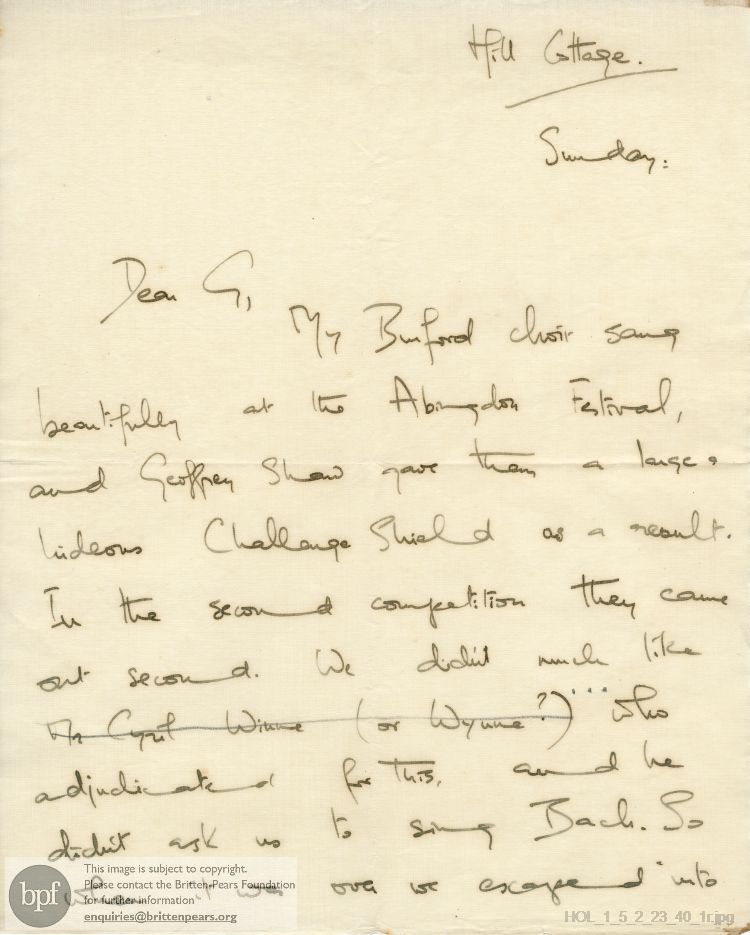 Hill Cottage.
Sunday.
Dear G,
My Burford choir sang
beautifully at the Abingdon Festival,
and Geoffrey Shaw gave them a large &
hideous Challenge Shield as a result.
In the second competition they came
out second. We didn't much like
Mr Cyril Winne (or Wynne?) ... who
adjudicated for this, and he
didn't ask us to sing Bach. So
when it was over we escaped into
bpf
This image is subject to copyright.
Please contact the Britten-Pears Foundation
for further information
enquiries@brittenpears.org
HOL_1_5_2_23_40_1r.jpg